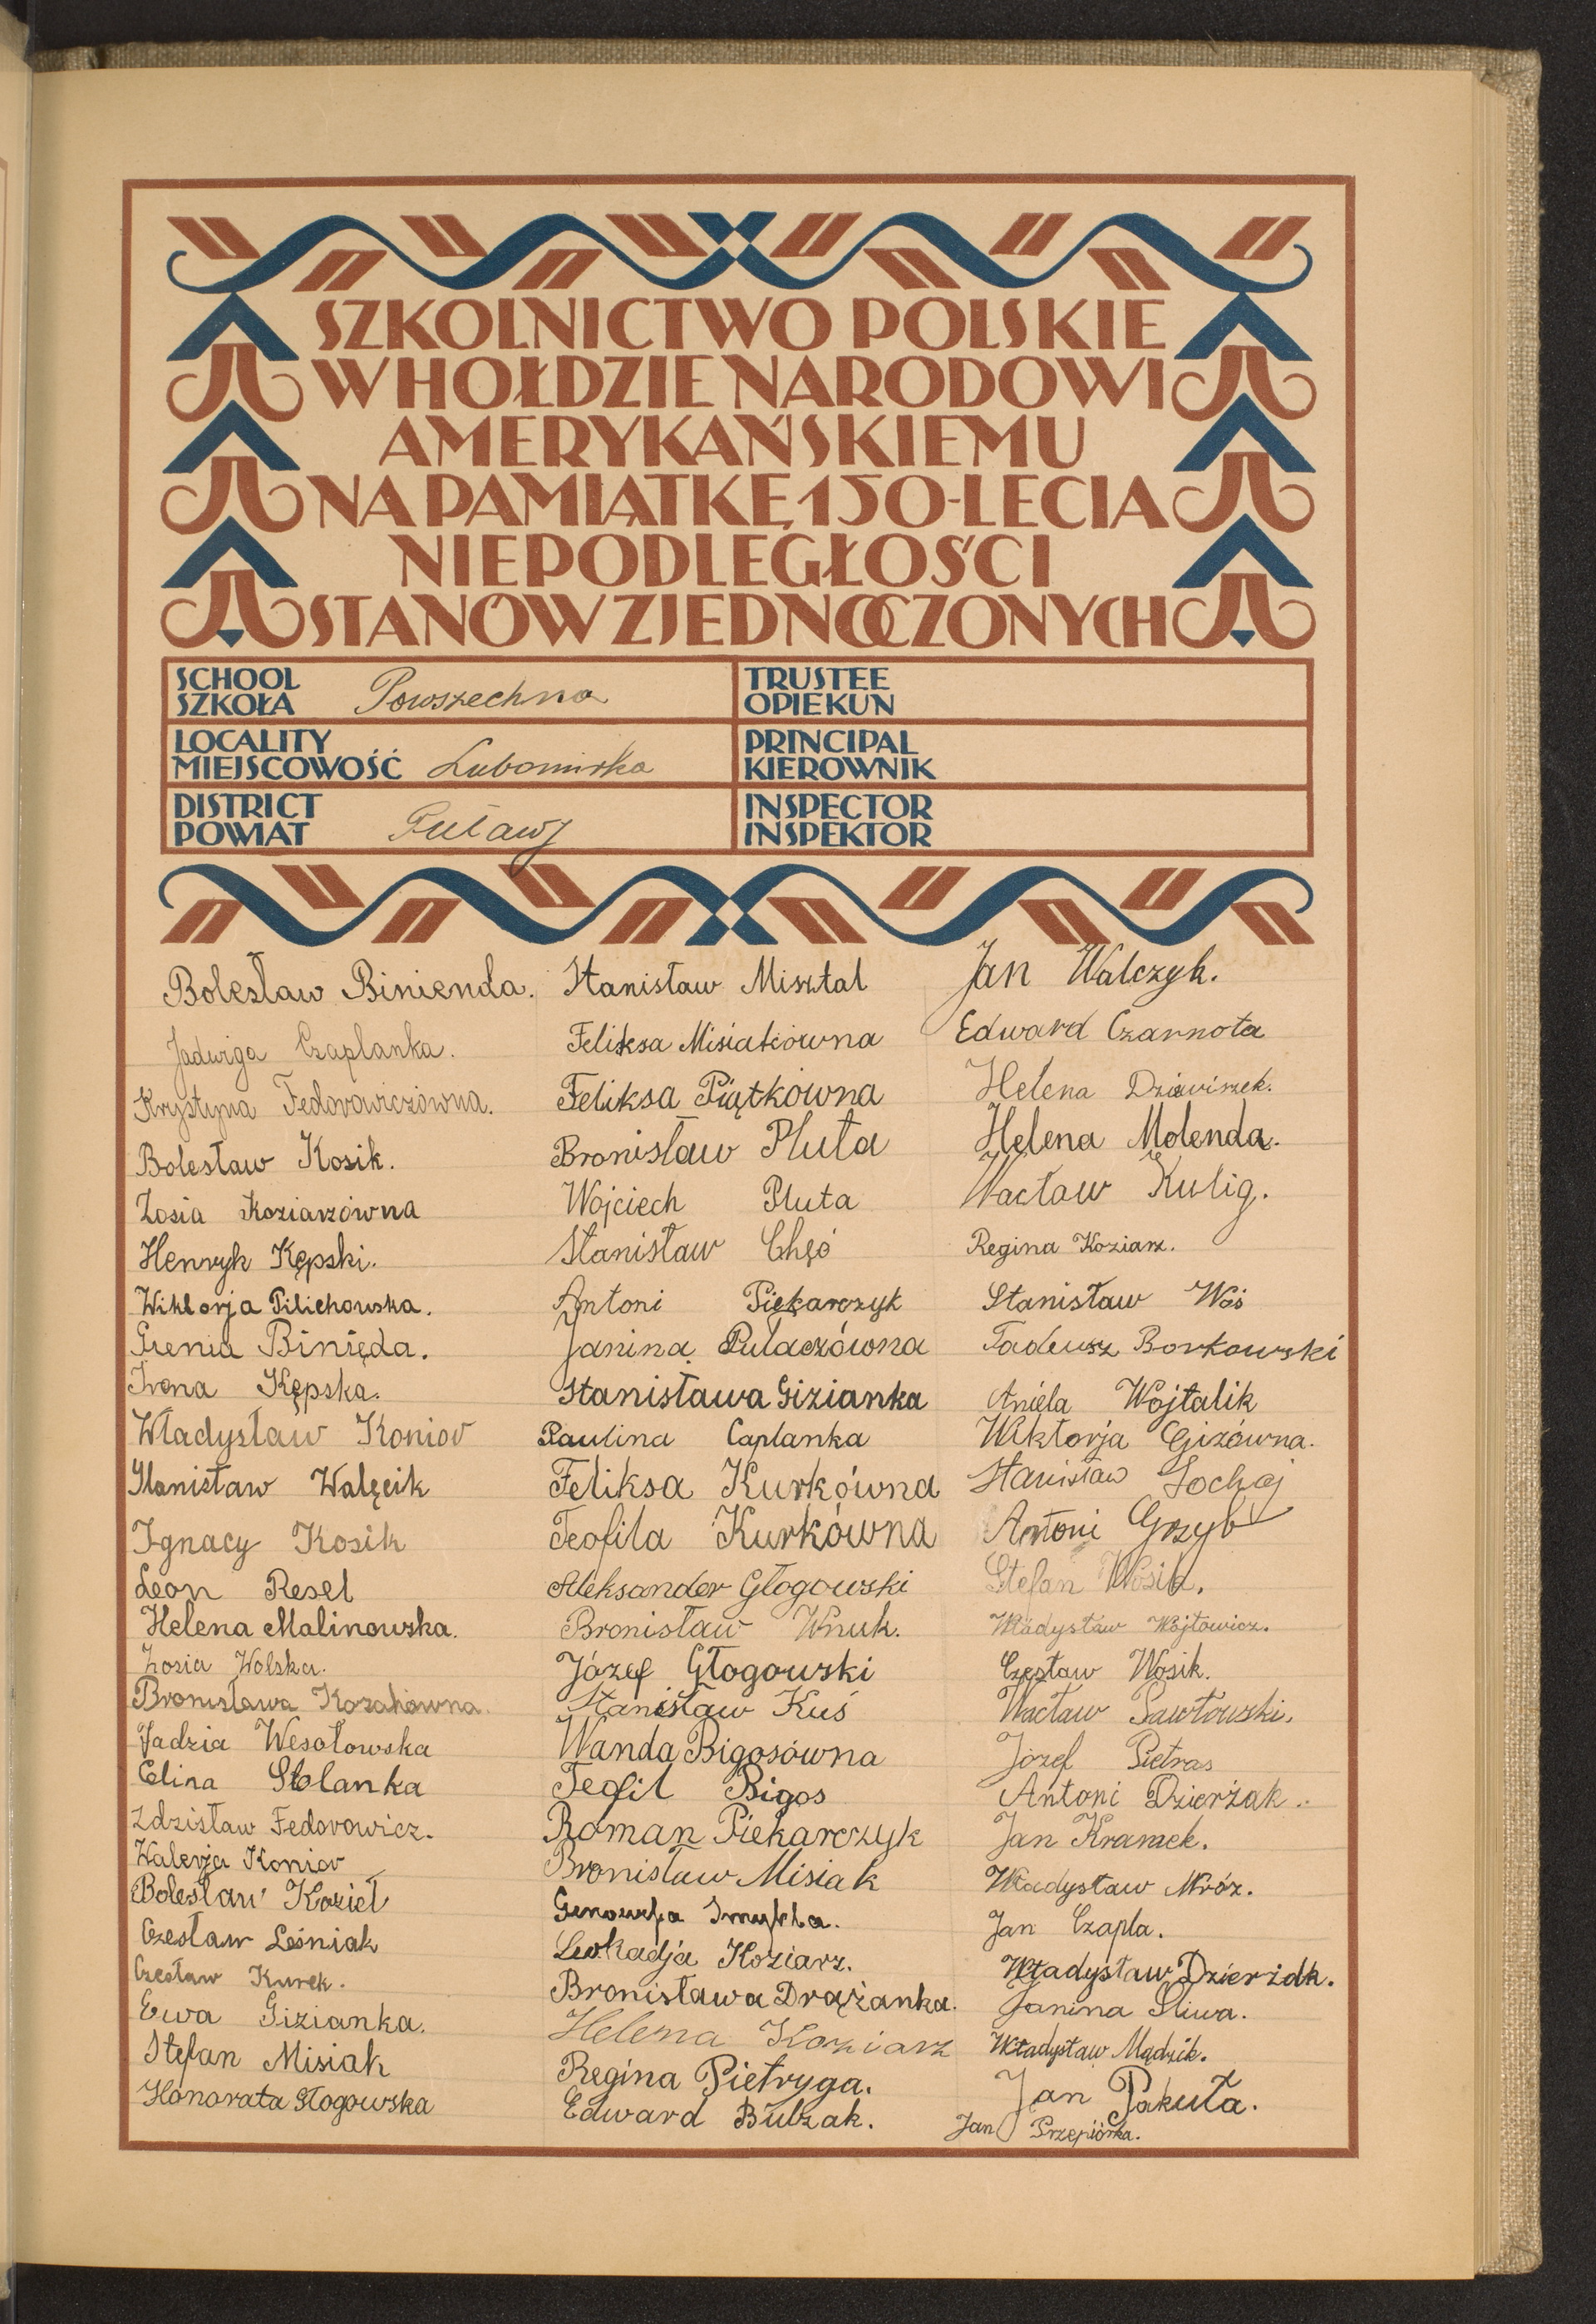 SZKOLNICTWO POLSKIE
W HOŁDZIE NARODOWI
AMERYKAŃSKIEMU
NA PAMIĄTKĘ 150-LECIA
NIEPODLEGŁOŚCI
STANÓW ZJEDNOCZONYCH
SCHOOL
SZKOŁA Powszechna
LOCALITY
MIEJSCOWOŚĆ Lubomirka
DISTRICT
POWIAT Puławy
TRUSTEE
OPIEKUN
PRINCIPAL
KIEROWNIK
INSPECTOR
INSPEKTOR
Bolesław Binienda.
Jadwiga Czaplanka.
Krystyna Fedorowiczówna.
Bolesław Kosik.
Zosia Koziarzówna
Henryk Kępski.
Wiktorja Pilichowska.
Irenia Binięda.
Irena Kępska.
Władysław Konior
Stanisław Walęcik
Ignacy Kosik
Leon Resel
Helena Malinowska.
Zosia Wolska.
Bronisława Kozakówna.
Jadzia Wesołowska
Celina Stolanka
Zdzisław Fedorowicz.
Walerja Konior
Bolesław Kozieł
Czesław Leśniak
Czesław Kurek.
Ewa Gizianka.
Stefan Misiak
Honorata Głogowska
Stanisław Misztal
Feliksa Misiakówna
Feliksa Piątkówna
Bronisław Pluta
Wojciech Pluta
Stanisław Chęć
Antoni Piekarczyk
Janina Pulaczówna
Stanisława Gizianka
Paulina Caplanka
Feliksa Kurkówna
Teofila Kurkówna
Aleksander Głogowski
Bronisław Wnuk.
Józef Głogowski
Stanisław Kuś
Wanda Bigosówna
Teofil Bigos
Roman Piekarczyk
Bronisław Misiak
Genowefa Smykla.
Leokadja Koziarz.
Bronisława Drążanka.
Helena Koziarz
Regina Pietryga.
Edward Bulzak.
Jan Walczyk.
Edward Czarnota
Helena Dziewiszek.
Helena Molenda.
Wacław Kulig.
Regina Koziarz.
Stanisław Woś
Tadeusz Borkowski
Aniela Wojtalik
Wiktorja Gizówna.
Stanisław Sochaj
Antoni Grzyb
Stefan Wosik.
Władysław Wójtowicz.
Czesław Wosik.
Wacław Pawłowski.
Józef Pietras
Antoni Dzierżak.
Jan Kramek.
Władysław Mróz.
Jan Czapla.
Władysław Dzierżak.
Janina Śliwa.
Władysław Mądzik.
Jan Pakuła.
Jan Przepiórka.